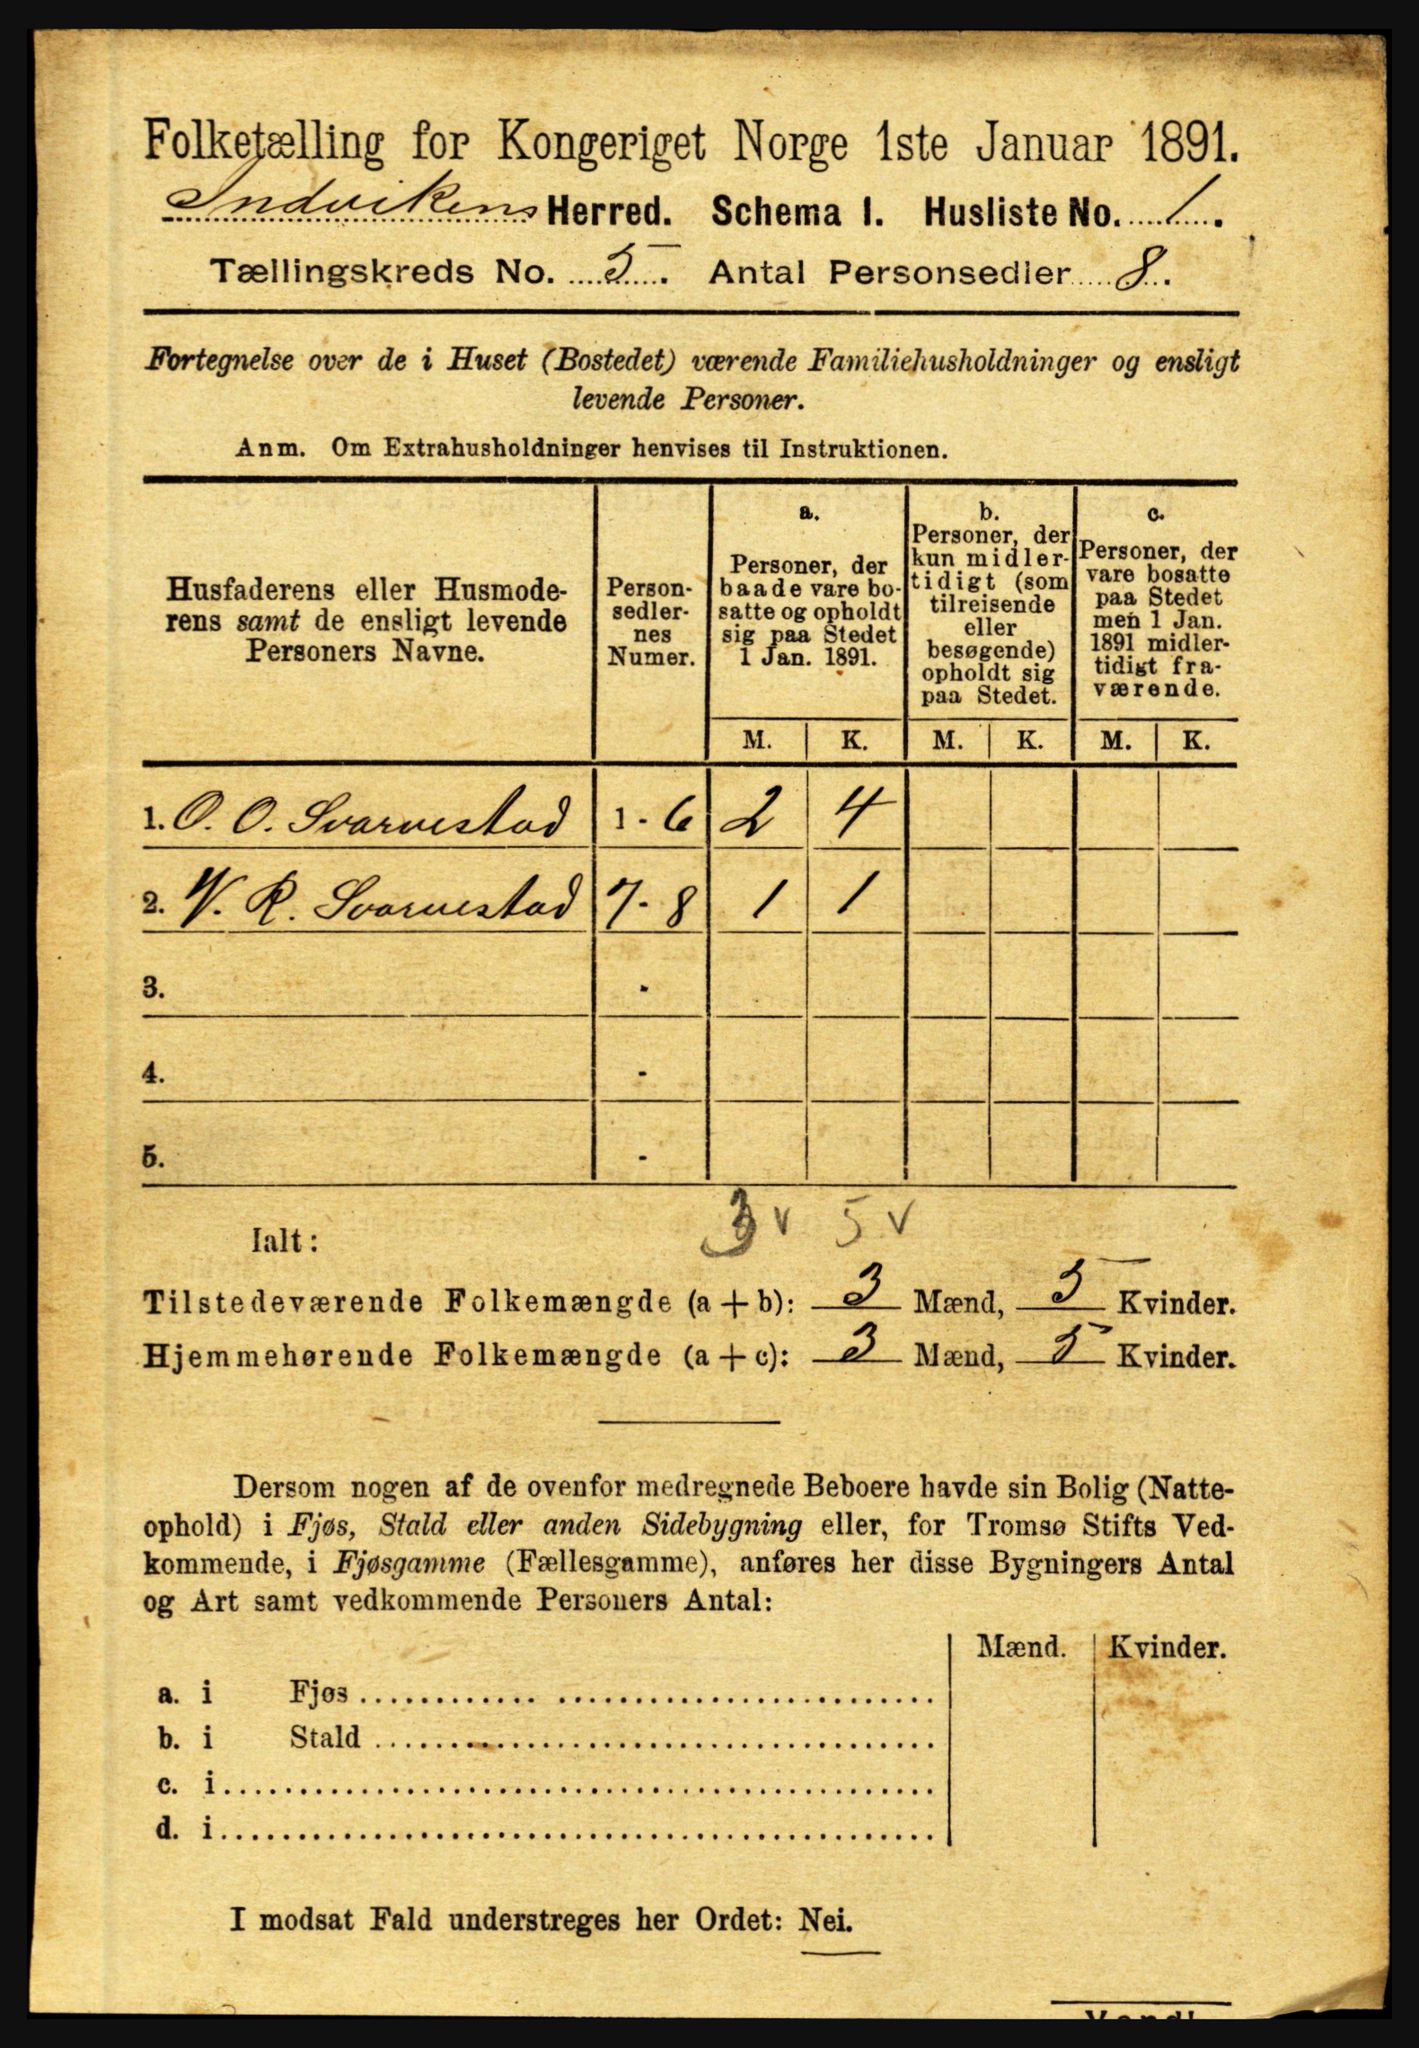 Folketælling for Kongeriget Norge 1ste Januar 1891.
Indvikens Herred. Schema I. Husliste No. 1.
Tællingskreds No. 5. Antal Personsedler 8.
Fortegnelse over de i Huset (Bostedet) værende Familiehusholdninger og ensligt
levende Personer.
Anm. Om Extrahusholdninger henvises til Instruktionen.
Husfaderens eller Husmode-
rens samt de ensligt levende
Personers Navne.
Person-
sedler-
nes
Numer.
a.
Personer, der
baade vare bo-
satte og opholdt
sig paa Stedet
1 Jan. 1891.
b.
Personer, der
kun midler-
tidigt (som
tilreisende
eller
besøgende)
opholdt sig
paa Stedet.
c.
Personer, der
vare bosatte
paa Stedet
men 1 Jan.
1891 midler-
tidigt fra-
værende.
M. K. M. K. M. K.
1. O. O. Svarvestad 1 - 6 2 4
2. V. R. Svarvestad 7 - 8 1 1
3. -
4. -
5. -
3 v 5 v
Ialt:
Tilstedeværende Folkemængde (a + b): 3 Mænd, 5 Kvinder.
Hjemmehørende Folkemængde (a + c): 3 Mænd, 5 Kvinder.
Dersom nogen af de ovenfor medregnede Beboere havde sin Bolig (Natte-
ophold) i Fjøs, Stald eller anden Sidebygning eller, for Tromsø Stifts Ved-
kommende, i Fjøsgamme (Fællesgamme), anføres her disse Bygningers Antal
og Art samt vedkommende Personers Antal:
Mænd. Kvinder.
a. i Fjøs
b. i Stald
c. i
d. i
I modsat Fald understreges her Ordet: Nei.
Vend!